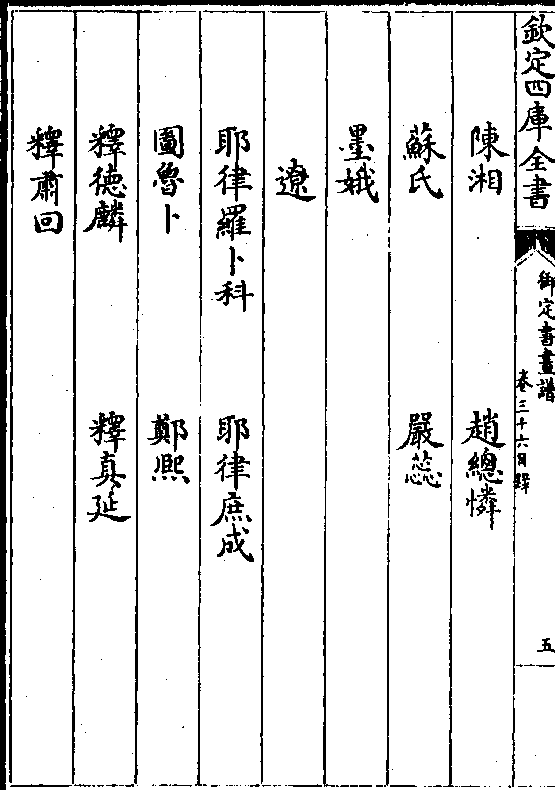 欽定四庫全書
御定書畫譜
卷三十六目錄
五
陳湘 趙總憐
蘇氏 嚴蕊
墨娥
遼
耶律羅卜科 耶律庶成
圖魯卜 鄭熙
釋德麟 釋真延
釋肅回